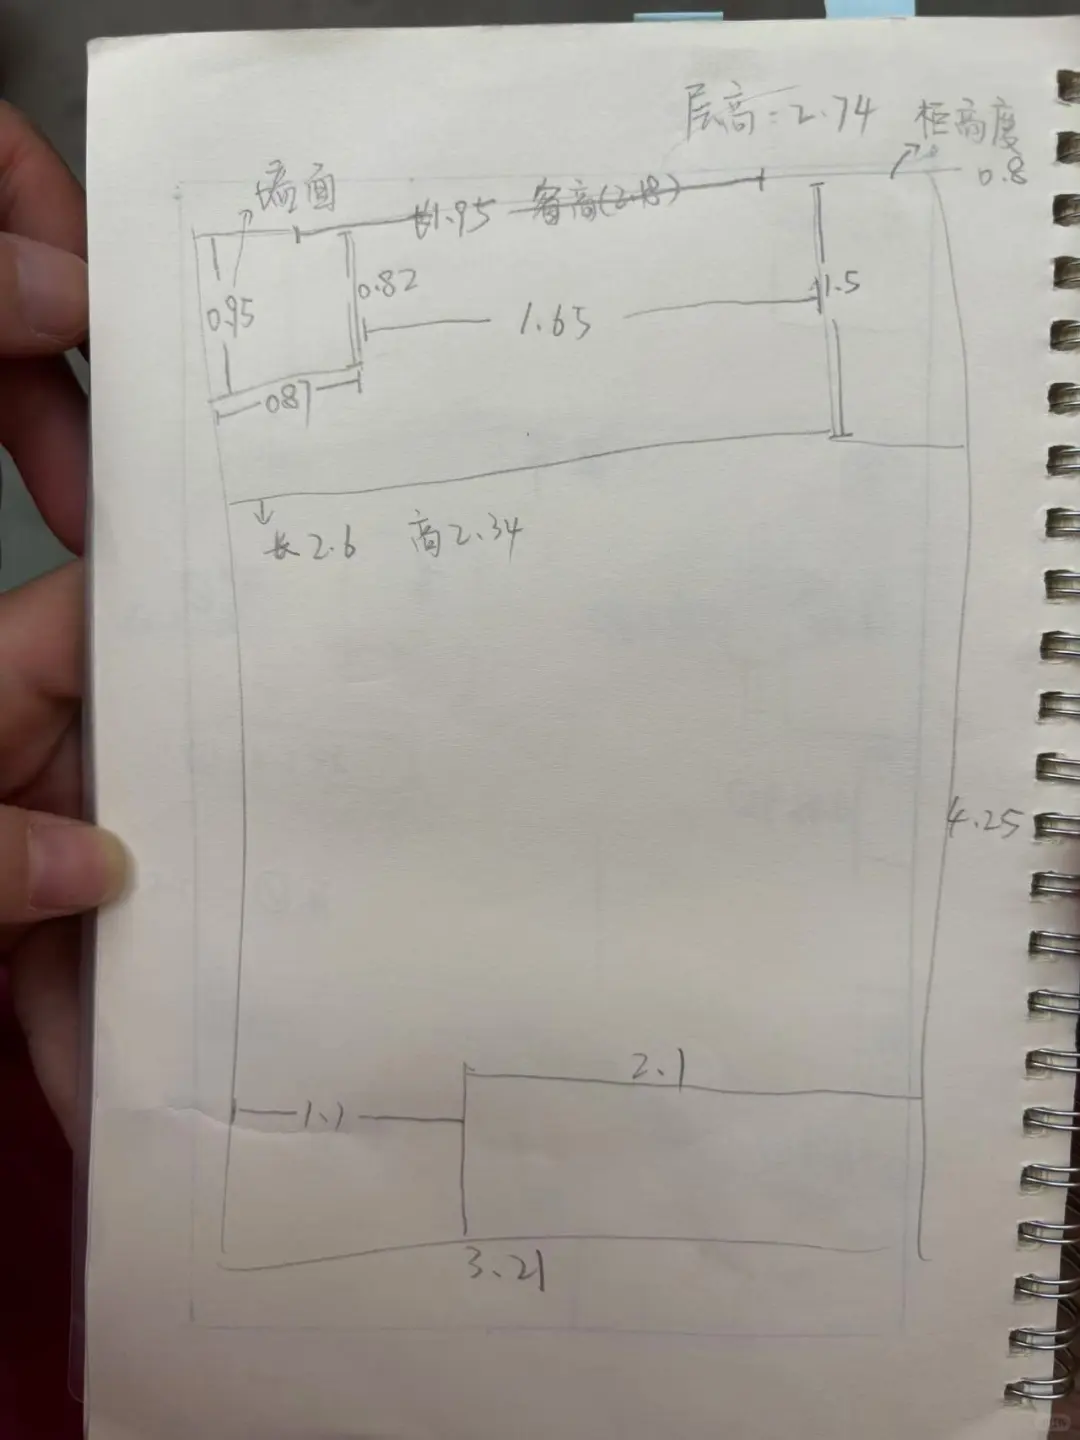 层高:2.74
柜高度
0.8
墙面
长1.95 窗高(2.18)
0.95
0.82
1.5
1.65
0.87
长2.6 高2.34
4.25
2.1
1.1
3.21